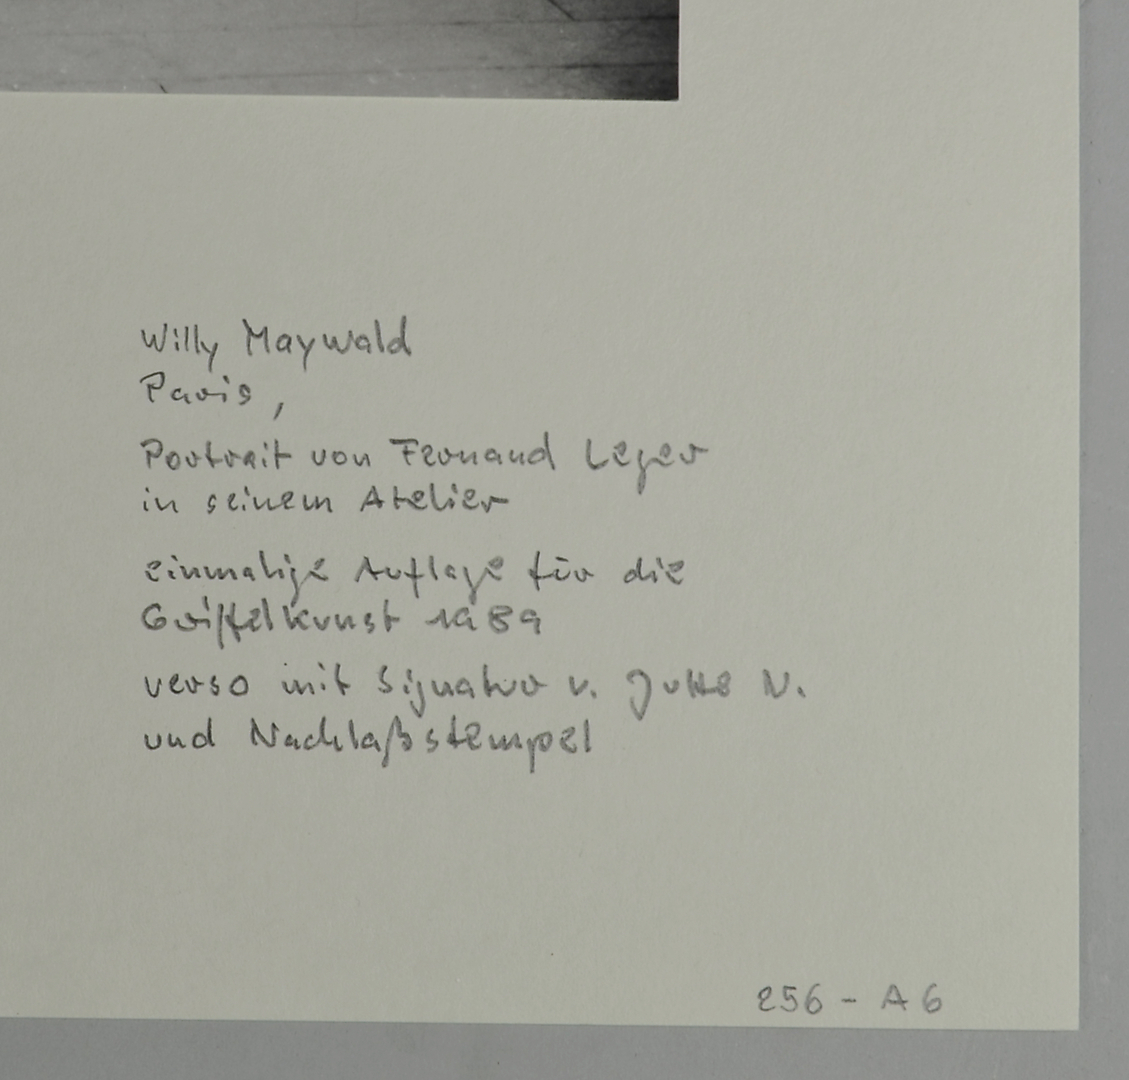 Willy Maywald
Paris,
Portrait von Fernand Leger
in seinem Atelier
einmalige Auflage für die
Griffelkunst 1989
verso mit Signatur v. Jutta N.
und Nachlaßstempel
256 - A 6